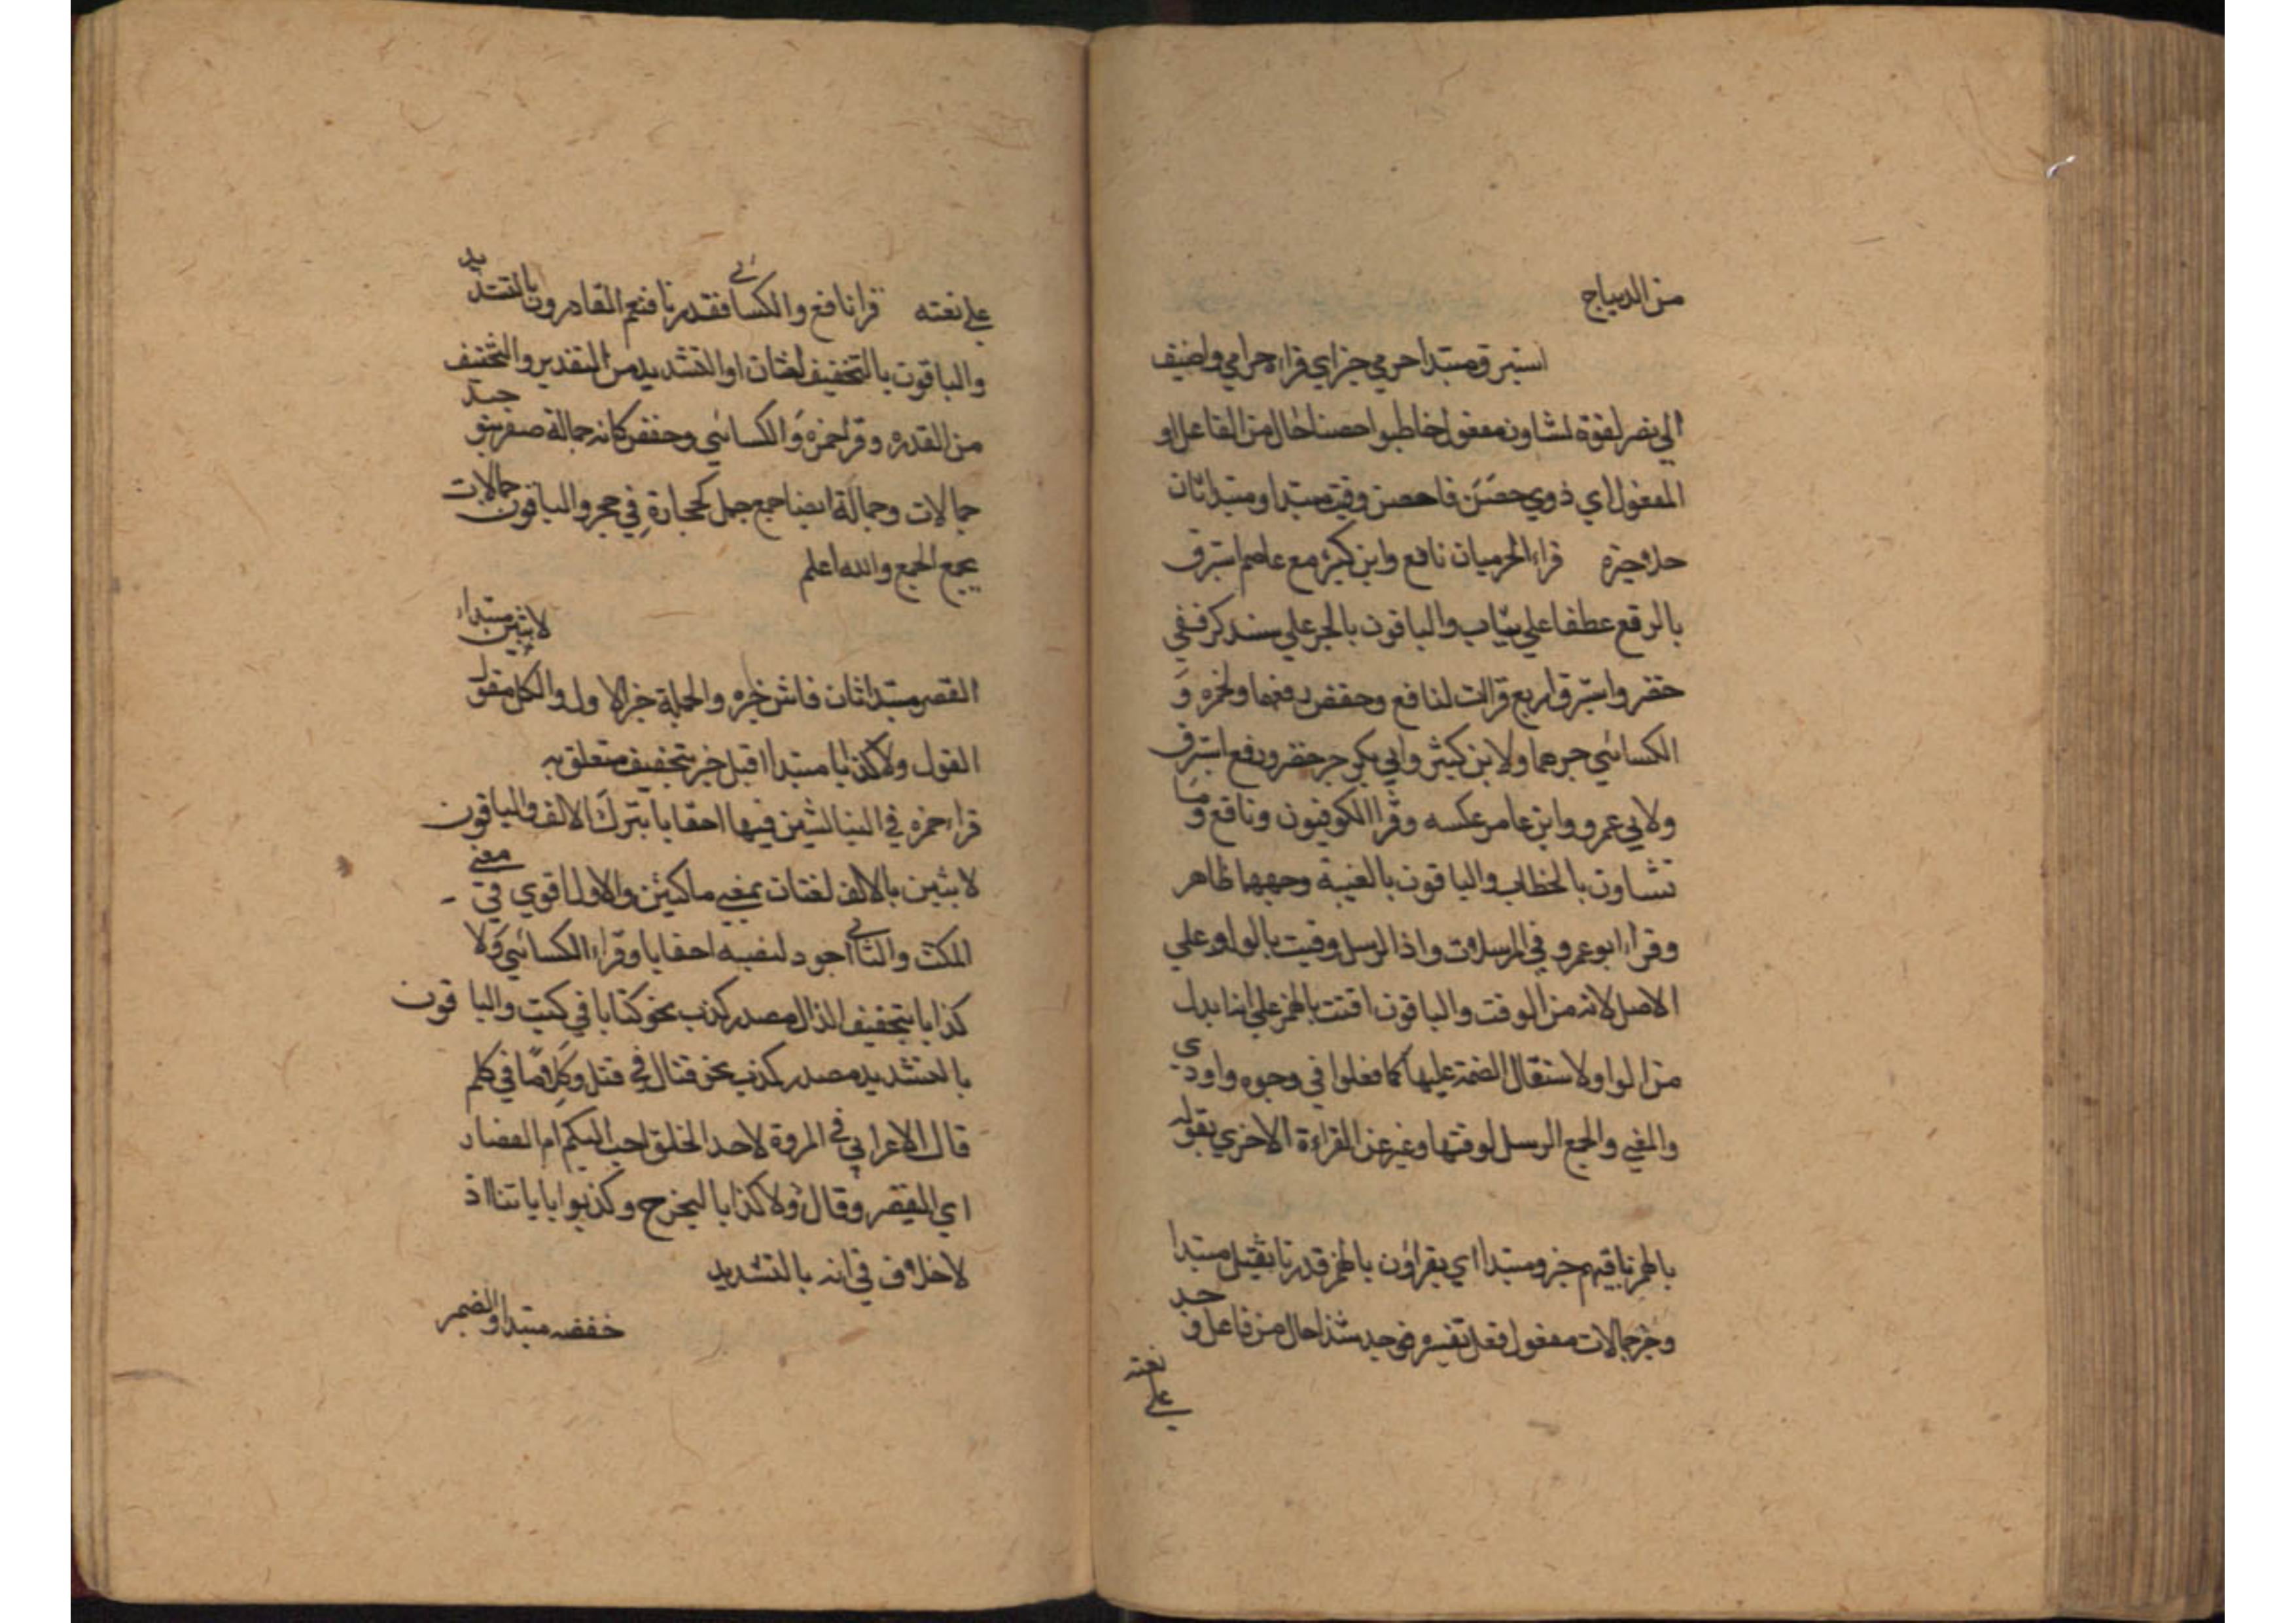 من الديباج
استبرق مبتدا حرمي خبر اي قراه حرامي واضيف
الي نصر لقوة تشاون مفعول خاطبوا حصنا حال من الفاعل او
المفعول اي ذوي حصن فاحصن وقيت مبتدا ومبتدا ثان
حلا خبره قراء الحرميان نافع وابن كثير مع عاصم استبرق
بالرفع عطفا علي ثياب والباقون بالجر علي سندكر ففي
خضر واستبرق اربع قرات لنافع وحفص رفعهما ولحمزه و
الكسائي جرهما ولابن كثير وابي بكر جر خضر ورفع استبرق
ولابي عمرو وابن عامر عكسه وقرا الكوفيون ونافع وما
تشاون بالخطاب والباقون بالغيبة وجهها ظاهر
وقراء ابو عمرو في المرسلات واذا الرسل وقيت بالواو علي
الاصل لانه من الوقت والباقون اقتت بالهمز علي انها بدل
من الواو ولاستقال الضمة عليها كما فعلوا في وجوه واودي
والمغي والجمع الرسل لوقتها وغير عن القراءة الاخري بقوله
بالهمز باقيهم خبر ومبتدا اي يقراون بالهمز قدرنا بثقيل مبتدا
وخبر جمالات مفعول فعل تفسيره وحد شذا حال من فاعل وحد
علي نعته
علي نعته قرا نافع والكسائي فقدرنا فنعم القادرون بالتشديد
والباقون بالتخفيف لغتان او التشديد من التقدير والتخفيف
من القدره وقرا حمزه والكسائي وحفص كانه جمالة صفر بتوحيد
جمالات وجمالة ايضا جمع جمل كحجارة في حجر والباقون جمالات
بجمع الجمع والله اعلم
لابثين مبتداء
القصر مبتدا ثان فاش خبره والجملة خبر الاول والكل مقول
القول ولا كذابا مبتدا اقبل خبر بتخفيف متعلق به
قراء حمزه في النبا لبثين فيها احقابا بترك الالف والباقون
لابثين بالالف لغتان بمعني ماكثين والاول اقوي في معني
المكث والثاني اجود لنصبه احقابا وقراء الكسائي ولا
كذابا بتخفيف الذال مصدر كذب نحو كتابا في كتب والباقون
بالتشديد مصدر كذب نحو قتال في قتل وكلاما في كلم
قال الاعرابي في المروة لاحد الخلق احب اليكم ام القصار
اي التقصر وقال ولا كذابا ليخرج وكذبوا باياتنا اذ
لا خلاف في انه بالتشديد
خفضه مبتدا والضمير